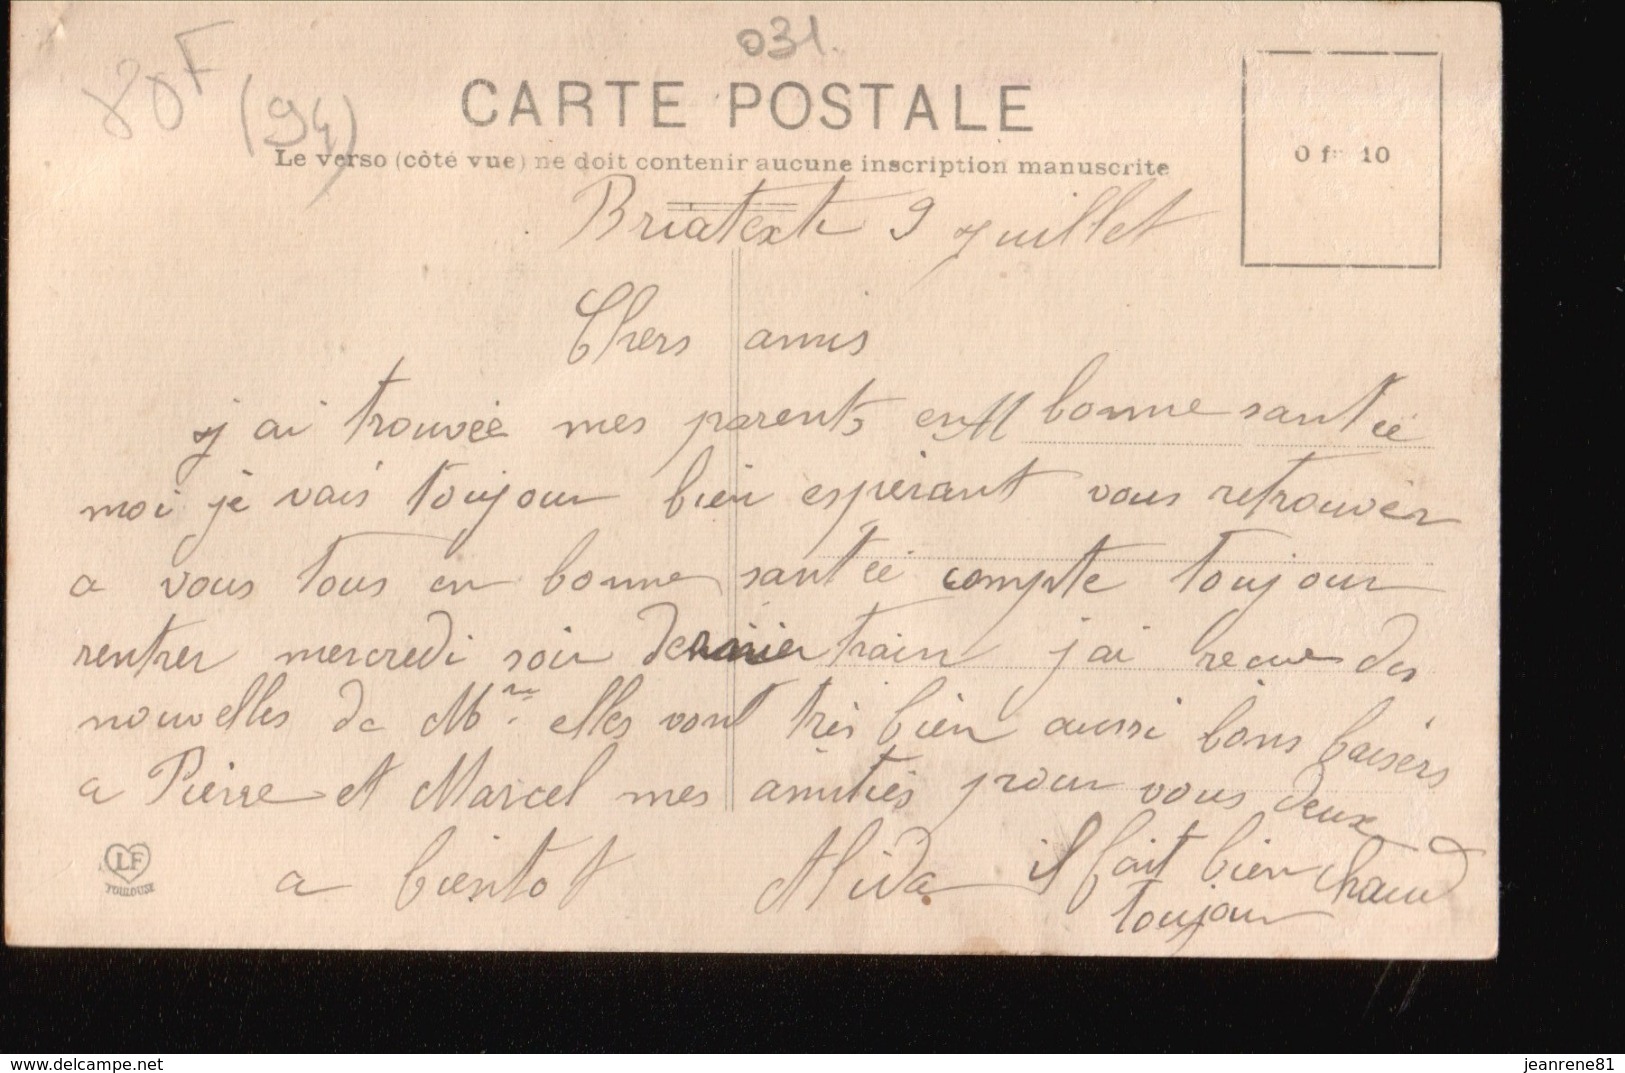 031.
80F (94)
CARTE POSTALE
Le verso (côté vue) ne doit contenir aucune inscription manuscrite
0 fr 10
Briatexte 9 Juillet
Chers amis
j ai trouvée mes parents en bonne santée
moi je vais toujour bien espérant vous retrouver
a vous tous en bonne santée compte toujour
rentrer mercredi soir dernier train j ai recue des
nouvelles de elles vont très bien aussi bons baisers
a Pierre et Marcel mes amitiés pour vous deux
a bientot Alida il fait bien chaud
toujour
LF
TOULOUSE
delcampe.net
jeanrene81